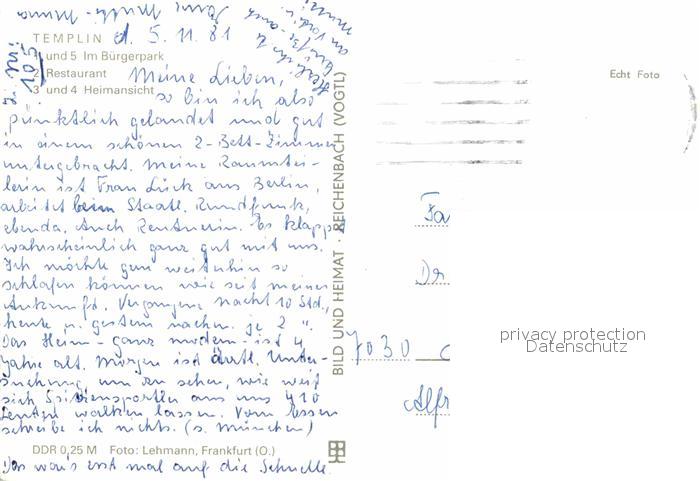 TEMPLIN d. 5.11.81
1 und 5 Im Bürgerpark
2 Restaurant
3 und 4 Heimansicht
Meine Lieben,
so bin ich also
pünktlich gelandet und gut
in einem schönen 2-Bett-Zimmer
untergebracht. Meine Raumtei-
lerin ist Frau Lück aus Berlin,
arbeitet beim Staatl. Rundfunk,
ebenda. Auch Rentnerin. Es klappt
wahrscheinlich ganz gut mit uns.
Ich möchte gern weiterhin so
schlafen können wie seit meiner
Ankunft. Vergangene Nacht 10 Std.,
heute u. gestern nachm. je 2 ".
Das Heim - ganz modern - ist 4
Jahre alt. Morgen ist ärztl. Unter-
suchung, um zu sehen, wie weit
sich aus uns 410
walken lassen. Vom Essen
schreibe ich nichts. (s. München)
DDR 0,25 M Foto: Lehmann, Frankfurt (O.)
Das wär's erst mal auf die Schnelle.
Zi. Nr:
105
BILD UND HEIMAT · REICHENBACH (VOGTL)
Echt Foto
Fa
Dr
7030
Alfr
privacy protection
Datenschutz